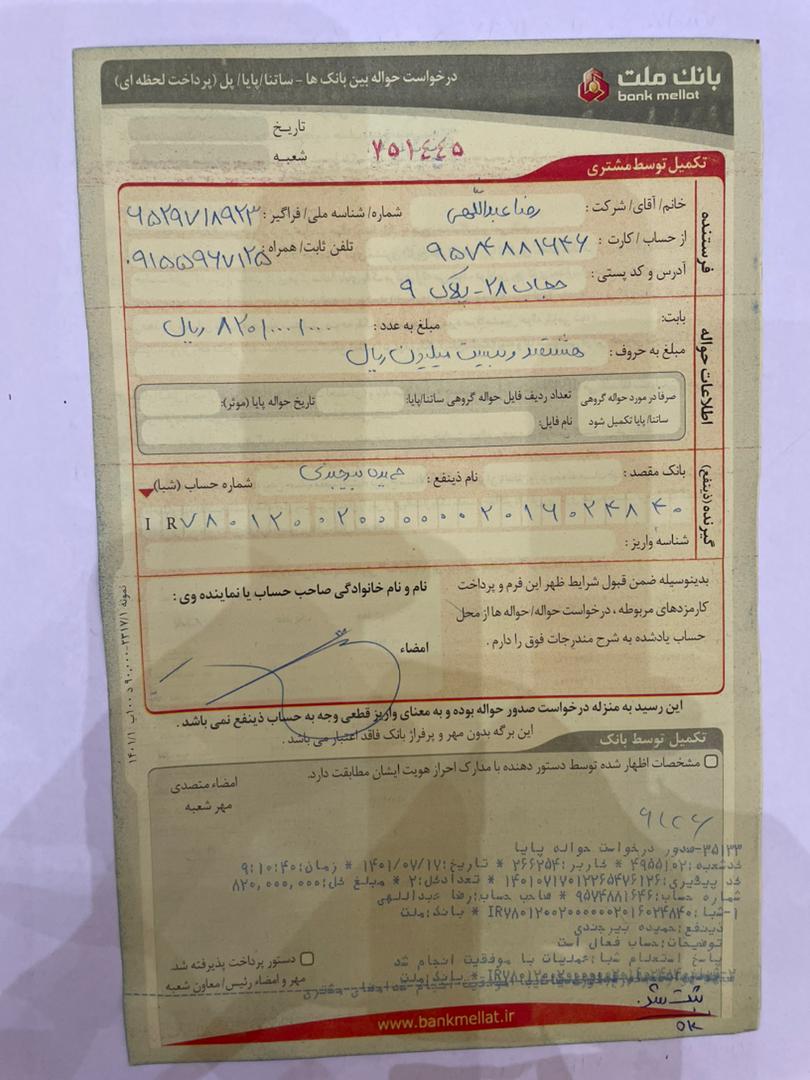 بانک ملت
bank mellat
درخواست حواله بین بانک ها - ساتنا/پایا/ پل (پرداخت لحظه ای)
تاریخ
شعبه
۷۵۱۴۴۵
تکمیل توسط مشتری
فرستنده
خانم/ آقای/ شرکت: رضا عبداللهی شماره/ شناسه ملی/ فراگیر: ۶۵۲۹۷۱۸۹۲۳
از حساب/ کارت: ۹۵۷۴۸۸۱۶۴۶ تلفن ثابت/ همراه: ۰۹۱۵۵۹۶۷۱۲۵
آدرس و کد پستی: حجاب ۲۸ - پلاک ۹
اطلاعات حواله
بابت:
مبلغ به عدد: ۸۲۰/۰۰۰/۰۰۰ ریال
مبلغ به حروف: هشتصد و بیست میلیون ریال
صرفاً در مورد حواله گروهی ساتنا/ پایا تکمیل شود
تعداد ردیف فایل حواله گروهی ساتنا/پایا: تاریخ حواله پایا (موثر):
نام فایل:
گیرنده (ذینفع)
بانک مقصد: نام ذینفع: حمیده بیرجندی شماره حساب (شبا)
IR۷۸۰۱۲۰۰۲۰۰۰۰۰۰۲۰۱۶۰۲۴۸۴۰
شناسه واریز:
بدینوسیله ضمن قبول شرایط ظهر این فرم و پرداخت
کارمزدهای مربوطه، درخواست حواله/ حواله ها از محل
حساب یادشده به شرح مندرجات فوق را دارم.
نام و نام خانوادگی صاحب حساب یا نماینده وی:
امضاء
این رسید به منزله درخواست صدور حواله بوده و به معنای واریز قطعی وجه به حساب ذینفع نمی باشد.
این برگه بدون مهر و پرفراژ بانک فاقد اعتبار می باشد.
نمونه ۲۳۱۷/۱-۹۰،۰۰۰ د ۱۰۰ب ۱۴۰۱/۱
تکمیل توسط بانک
مشخصات اظهار شده توسط دستور دهنده با مدارک احراز هویت ایشان مطابقت دارد.
امضاء متصدی
مهر شعبه
۳۵۱۳۳-صدور درخواست حواله پایا
کدشعبه:۴۹۵۵۱۰۲ * کاربر:۲۶۶۲۵۴ * تاریخ:۱۴۰۱/۰۷/۱۷ * زمان:۹:۱۰:۴۰
کد پیگیری:۱۴۰۱۰۷۱۷۰۱۲۲۶۵۴۷۶۱۲۶ * تعدادکل:۲ * مبلغ کل:۸۲۰,۰۰۰,۰۰۰
شماره حساب:۹۵۷۴۸۸۱۶۴۶ * صاحب حساب:رضا عبداللهی
۱-شبا:IR۷۸۰۱۲۰۰۲۰۰۰۰۰۰۲۰۱۶۰۲۴۸۴۰ * بانک:ملت
ذینفع:حمیده بیرجندی
توضیحات:حساب فعال است
پاسخ استعلام شبا:عملیات با موفقیت انجام شد
دستور پرداخت پذیرفته شد.
مهر و امضاء رئیس/ معاون شعبه
ثبت شد.
ok
www.bankmellat.ir